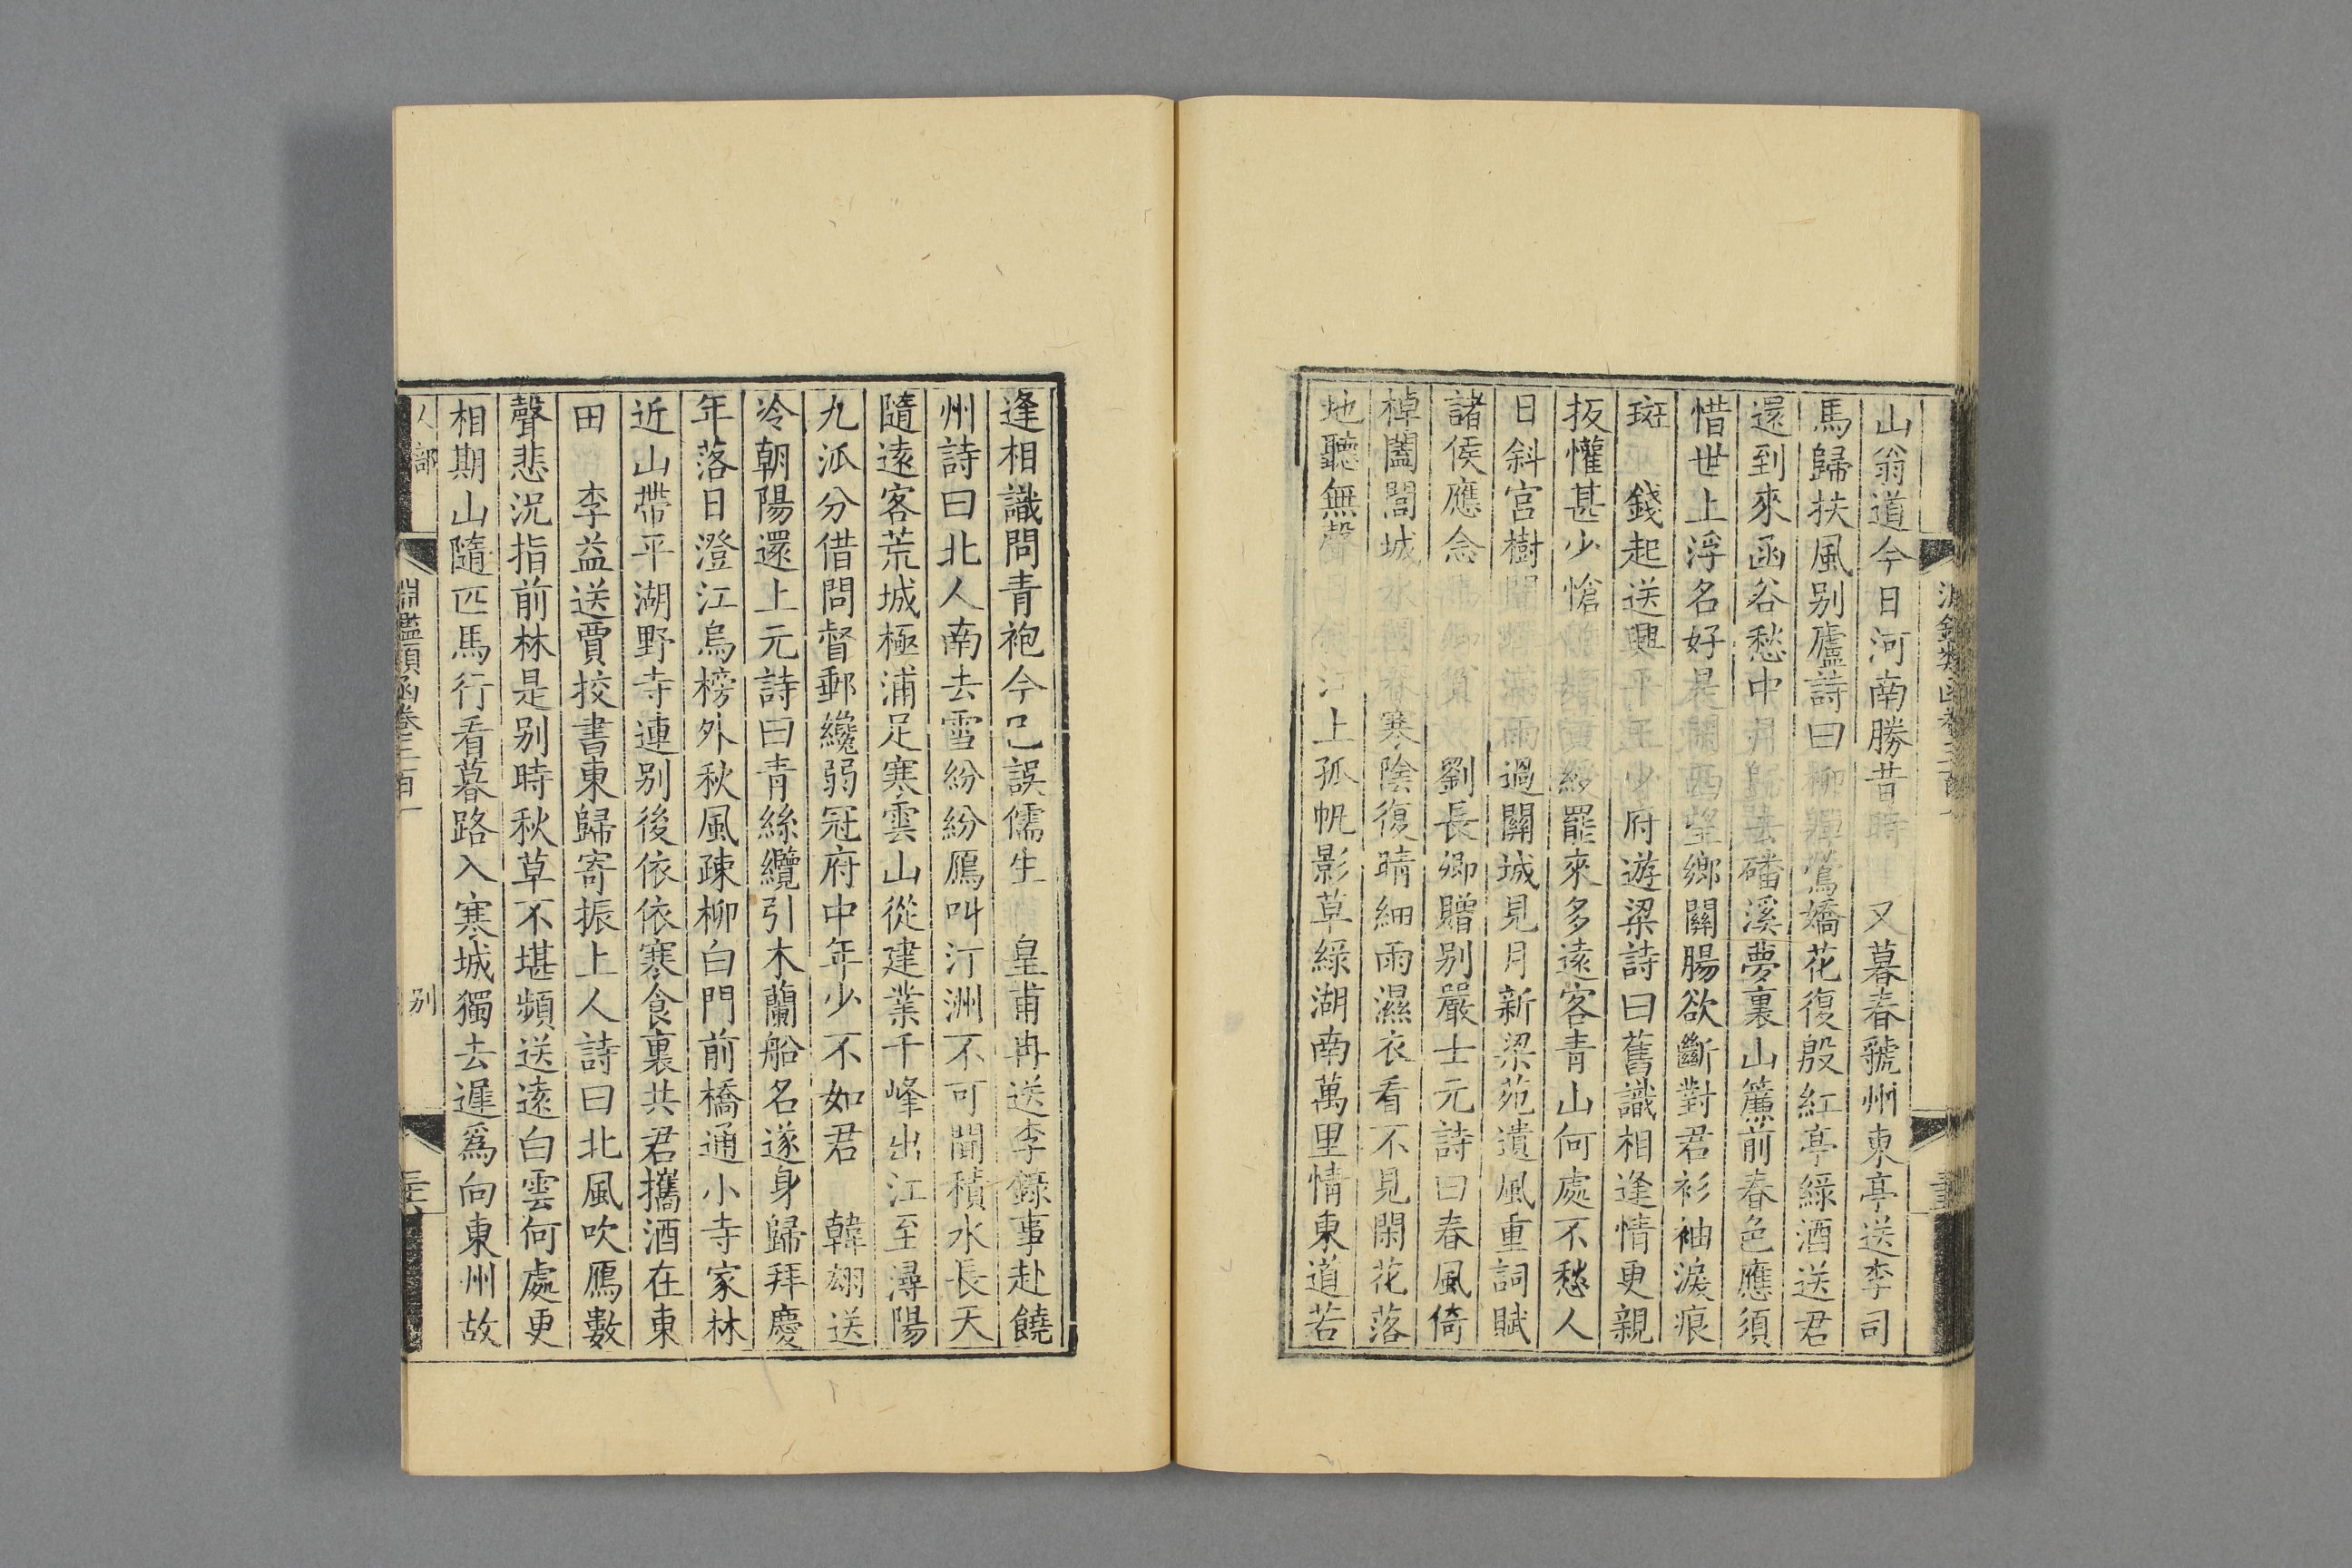 山翁道今日河南勝昔時 又暮春虢州東亭送李司
馬歸扶風别廬詩曰柳嚲鶯嬌花復殷紅亭綠酒送君
還到來函谷愁中月歸去磻溪夢裏山簾前春色應須
惜世上浮名好是閑西望鄉關腸欲斷對君衫袖淚痕
斑 錢起送興平王少府遊梁詩曰舊識相逢情更親
扳懽甚少愴 罷來多遠客青山何處不愁人
日斜宮樹聞蟬滿雨過關城見月新梁苑遺風重詞賦
諸侯應念馬卿貧 劉長卿贈别嚴士元詩曰春風倚
棹闔閭城水國春寒陰復晴細雨濕衣看不見閑花落
地聽無聲日斜江上孤帆影草綠湖南萬里情東道若
逢相識問青袍今已誤儒生 皇甫冉送李錄事赴饒
州詩曰北人南去雪紛紛鴈叫汀洲不可聞積水長天
隨遠客荒城極浦足寒雲山從建業千峰出江至潯陽
九派分借問督郵纔弱冠府中年少不如君 韓翃送
冷朝陽還上元詩曰青絲纜引木蘭船名遂身歸拜慶
年落日澄江烏榜外秋風疎柳白門前橋通小寺家林
近山帶平湖野寺連别後依依寒食裏共君攜酒在東
田 李益送賈挍書東歸寄振上人詩曰北風吹鴈數
聲悲況指前林是别時秋草不堪頻送遠白雲何處更
相期山隨匹馬行看暮路入寒城獨去遲爲向東州故
人部 淵鑑類函卷三百一 别